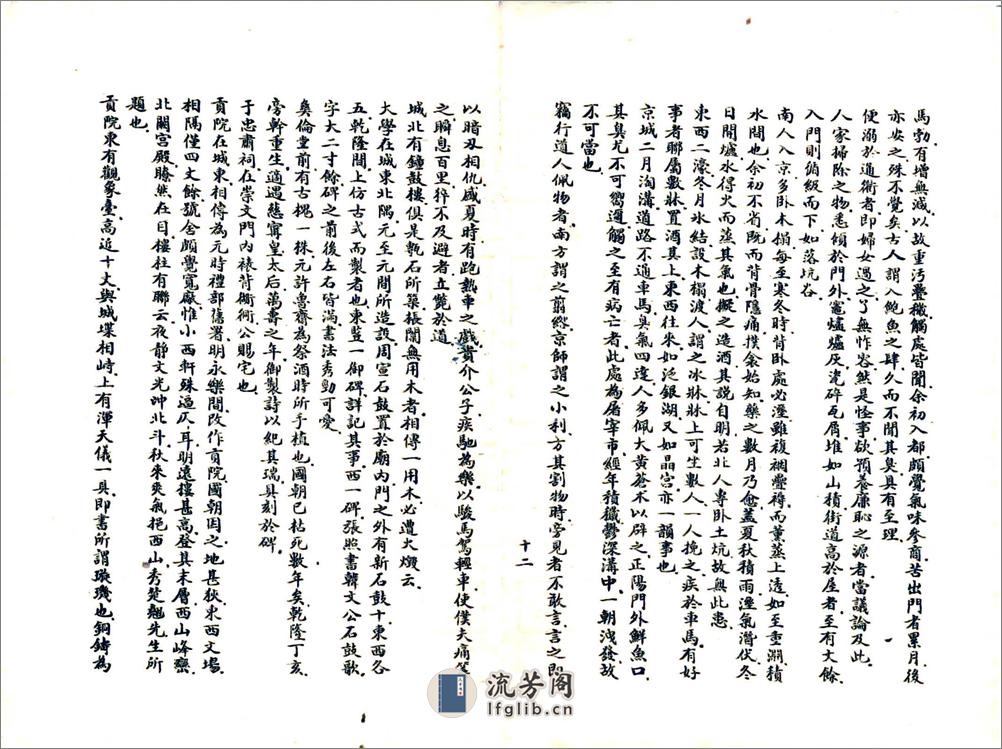 馬勃有增無減以故重污疊穢觸處皆聞余初入都頗覺氣味參商苦出門者累月後
亦安之殊不覺矣古人謂入鮑魚之肆久而不聞其臭具有至理
便溺於通衢者即婦女過之了無怍容然是怪事欲預養廉恥之源者當議論及此
人家掃除之物悉傾於門外竈爐爐灰瓷碎瓦屑堆如山積街道高於屋者至有丈餘
入門則循級而下如落坑谷
南人入京多卧木榻每至寒冬時背卧處必溼雖複裀疊褥而薰蒸上透如至重淵積
水間也余初不省既而背骨隱痛撲象始知藥之數月乃愈蓋夏秋積雨溼氣潛伏冬
日開爐水得火而蒸其氣也擬之造酒其說自明若北人專卧土坑故無此患
東西二濠冬月水結設木榻渡人謂之冰牀牀上可坐數人一人挽之疾於車馬有好
事者聯屬數牀置酒其上東西往來如泛銀湖又如晶宮亦一韻事也
京城二月淘溝道路不通車馬臭氣四達人多佩大黄蒼术以辟之正陽門外鮮魚口
其臭尤不可嚮邇觸之至有病亡者此處為屠宰市經年積穢鬱深溝中一朝洩發故
不可當也
竊行道人佩物者南方謂之翦綹京師謂之小利方其割物時旁見者不敢言言之即
十二
以暗刃相仇盛夏時有跑熱車之戲貴介公子疾馳為樂以駿馬駕輕車使僕夫痛箠
之瞬息百里猝不及避者立斃於道
城北有鐘鼓樓俱是甎石所築棖闑無用木者相傳一用木必遭火燬云
太學在城東北隅元至元間所造設周宣石鼓置於廟內門之外有新石鼓十東西各
五乾隆間上仿古式而製者也東豎一御碑詳記其事西一碑張照書韓文公石鼓歌
字大二寸餘碑之前後左右皆滿書法秀勁可愛
奠倫堂前有古槐一株元許魯齋為祭酒時所手植也國朝已枯死數年矣乾隆丁亥
旁幹重生適遇慈寧皇太后萬壽之年御製詩以紀其瑞具刻於碑
于忠肅祠在崇文門內裱背衚衕公賜宅也
貢院在城東相傳為元時禮部舊署明永樂間改作貢院國朝因之地甚狄東西文塲
相隔僅四丈餘號舍頗覺寬厰惟小西軒殊逼仄耳明遠樓甚高登其末層西山峰巒
北闕宮殿瞭然在目樓柱有聯云夜靜文光冲北斗秋來爽氣挹西山秀楚翹先生所
題也
貢院東有觀象臺高近十丈與城堞相峙上有渾天儀一具即書所謂璇璣也銅鑄為
流芳阁
lfglib.cn